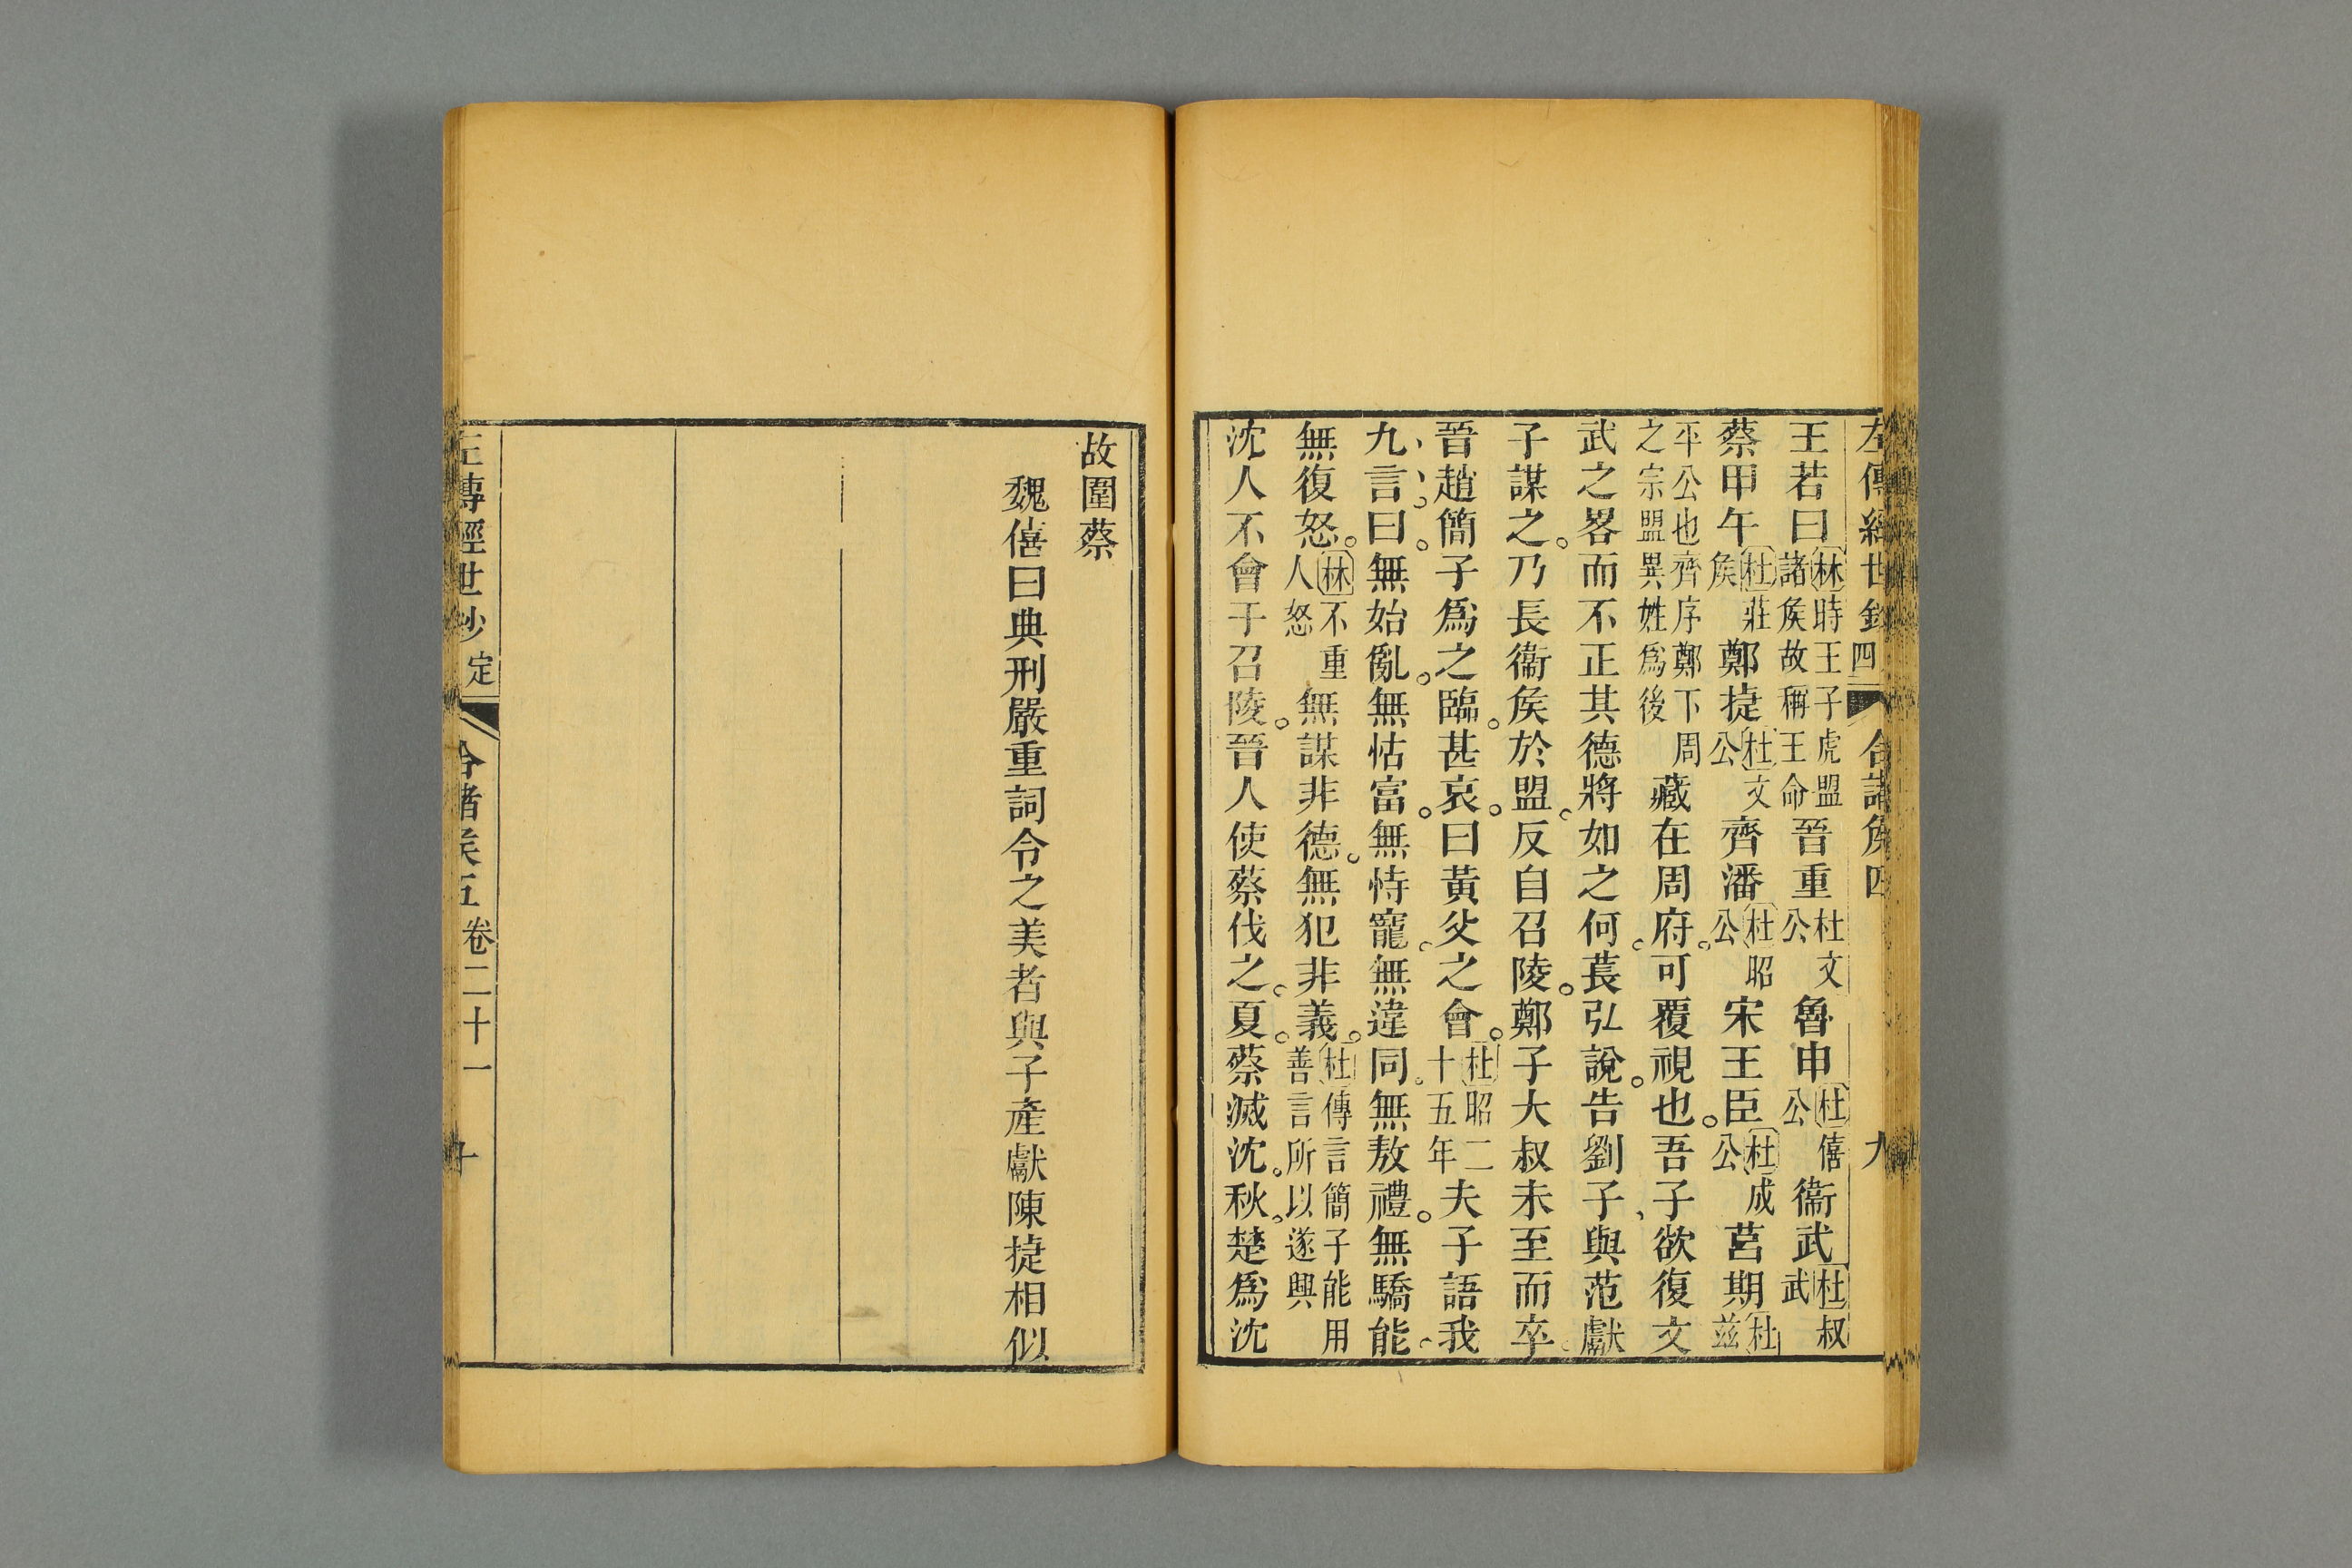 左傳經世鈔 四 合諸矦四 九
王若曰林時王子虎盟諸矦故稱王命晉重杜文公魯申杜僖公衞武杜叔武
蔡甲午杜莊矦鄭捷杜文公齊潘杜昭公宋王臣杜成公莒期杜兹
丕公也齊序鄭下周之宗盟異姓爲後藏在周府可覆視也吾子欲復文
武之畧而不正其德將如之何萇弘說告劉子與范獻
子謀之乃長衞矦於盟反自召陵鄭子大叔未至而卒
晉趙簡子爲之臨甚哀曰黃父之會杜昭二十五年夫子語我
九言曰無始亂無怙富無恃寵無違同無敖禮無驕能
無復怒林不重人怒無謀非德無犯非義杜傳言簡子能用善言所以遂興
沈人不會于召陵晉人使蔡伐之夏蔡滅沈秋楚爲沈
故圍蔡
魏僖曰典刑嚴重詞令之美者與子產獻陳捷相似
左傳經世鈔 定 合諸矦五 卷二十一 十